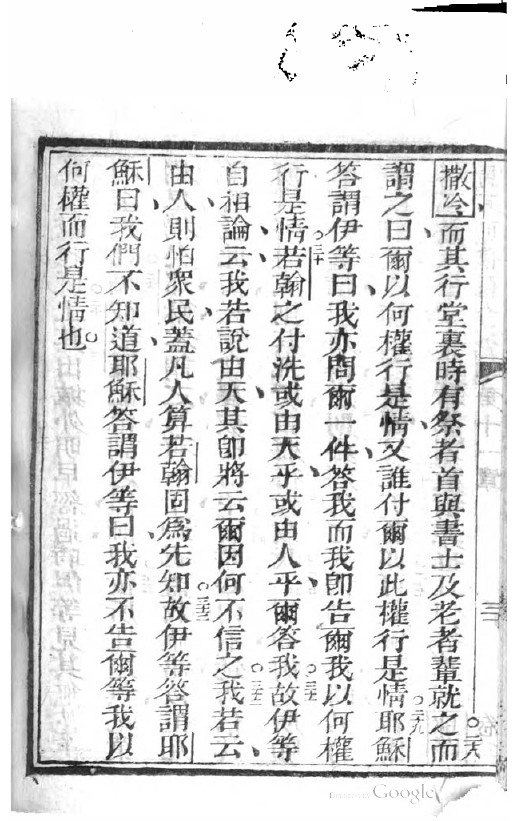 撒冷、而其行堂裏時有祭者首與書士及老者輩就之而
二八
謂之曰爾以何權行是情又誰付爾以此權行是情耶穌
二九
答謂伊等曰我亦問爾一件答我而我卽告爾我以何權
行是情若翰之付洗或由天乎或由人乎爾答我故伊等
三十
三一
自相論云我若說由天其卽將云爾因何不信之我若云
三二
由人則怕衆民蓋凡人算若翰固爲先知故伊等答謂耶
三三
穌曰我們不知道耶穌答謂伊等曰我亦不告爾等我以
何權而行是情也。
Google